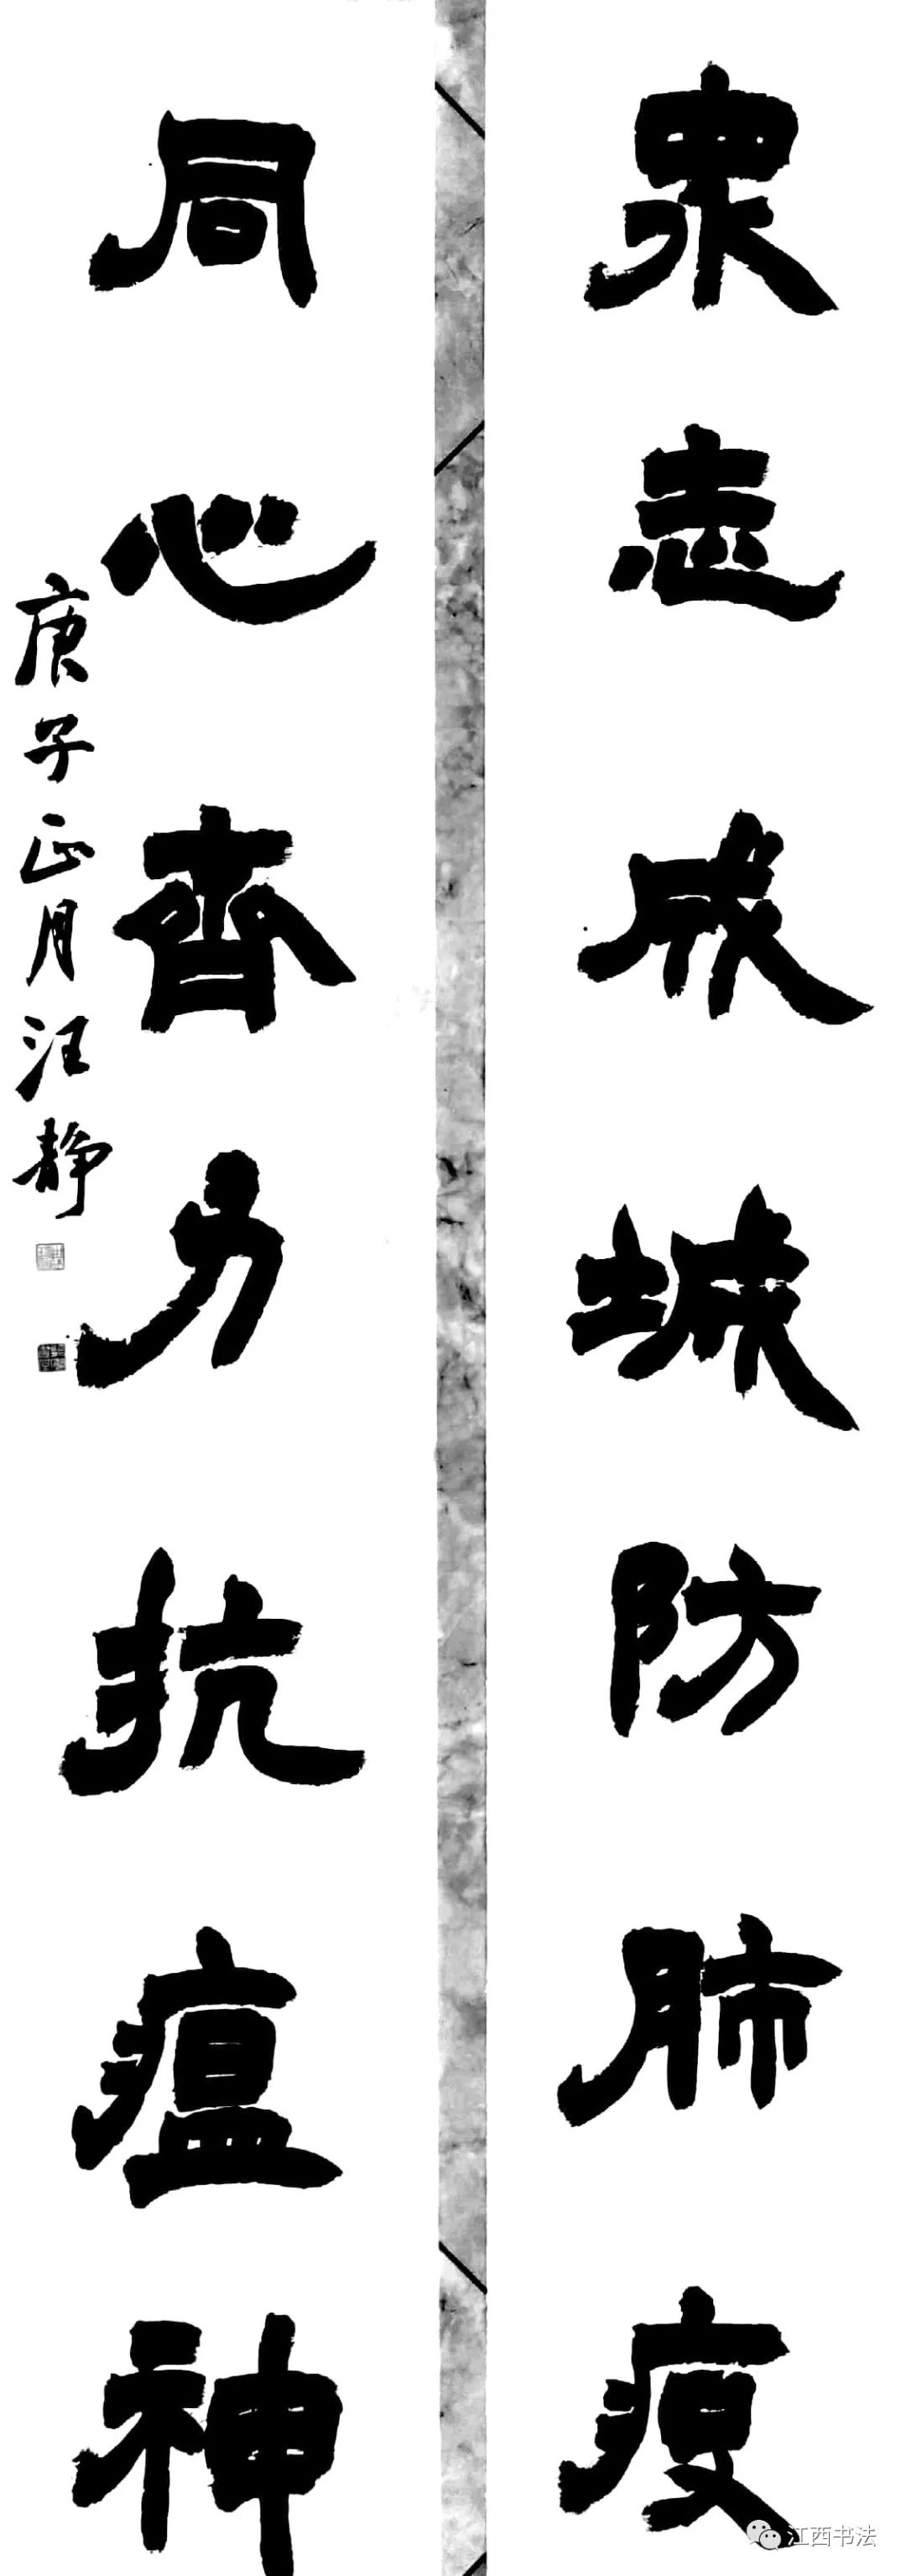 眾志成城防肺疫
同心齊力抗瘟神
庚子正月汪静
江西书法